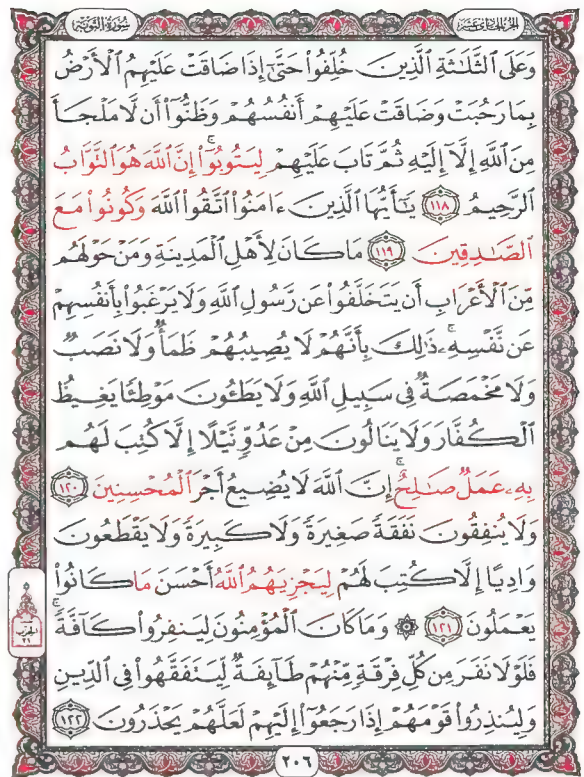 سُورَةُ التَّوْبَةِ
الجُزْءُ الحَادِي عَشَرَ
وَعَلَى ٱلثَّلَٰثَةِ ٱلَّذِينَ خُلِّفُوا۟ حَتَّىٰٓ إِذَا ضَاقَتْ عَلَيْهِمُ ٱلْأَرْضُ
بِمَا رَحُبَتْ وَضَاقَتْ عَلَيْهِمْ أَنفُسُهُمْ وَظَنُّوٓا۟ أَن لَّا مَلْجَأَ
مِنَ ٱللَّهِ إِلَّآ إِلَيْهِ ثُمَّ تَابَ عَلَيْهِمْ لِيَتُوبُوٓا۟ ۚ إِنَّ ٱللَّهَ هُوَ ٱلتَّوَّابُ
ٱلرَّحِيمُ ١١٨ يَٰٓأَيُّهَا ٱلَّذِينَ ءَامَنُوا۟ ٱتَّقُوا۟ ٱللَّهَ وَكُونُوا۟ مَعَ
ٱلصَّٰدِقِينَ ١١٩ مَا كَانَ لِأَهْلِ ٱلْمَدِينَةِ وَمَنْ حَوْلَهُم
مِّنَ ٱلْأَعْرَابِ أَن يَتَخَلَّفُوا۟ عَن رَّسُولِ ٱللَّهِ وَلَا يَرْغَبُوا۟ بِأَنفُسِهِمْ
عَن نَّفْسِهِۦ ۚ ذَٰلِكَ بِأَنَّهُمْ لَا يُصِيبُهُمْ ظَمَأٌ وَلَا نَصَبٌ
وَلَا مَخْمَصَةٌ فِى سَبِيلِ ٱللَّهِ وَلَا يَطَـُٔونَ مَوْطِئًا يَغِيظُ
ٱلْكُفَّارَ وَلَا يَنَالُونَ مِنْ عَدُوٍّ نَّيْلًا إِلَّا كُتِبَ لَهُم
بِهِۦ عَمَلٌ صَٰلِحٌ ۚ إِنَّ ٱللَّهَ لَا يُضِيعُ أَجْرَ ٱلْمُحْسِنِينَ ١٢٠
وَلَا يُنفِقُونَ نَفَقَةً صَغِيرَةً وَلَا كَبِيرَةً وَلَا يَقْطَعُونَ
وَادِيًا إِلَّا كُتِبَ لَهُمْ لِيَجْزِيَهُمُ ٱللَّهُ أَحْسَنَ مَا كَانُوا۟
يَعْمَلُونَ ١٢١ ۞ وَمَا كَانَ ٱلْمُؤْمِنُونَ لِيَنفِرُوا۟ كَآفَّةً ۚ
فَلَوْلَا نَفَرَ مِن كُلِّ فِرْقَةٍ مِّنْهُمْ طَآئِفَةٌ لِّيَتَفَقَّهُوا۟ فِى ٱلدِّينِ
وَلِيُنذِرُوا۟ قَوْمَهُمْ إِذَا رَجَعُوٓا۟ إِلَيْهِمْ لَعَلَّهُمْ يَحْذَرُونَ ١٢٢
الحزب
٢١
٢٠٦